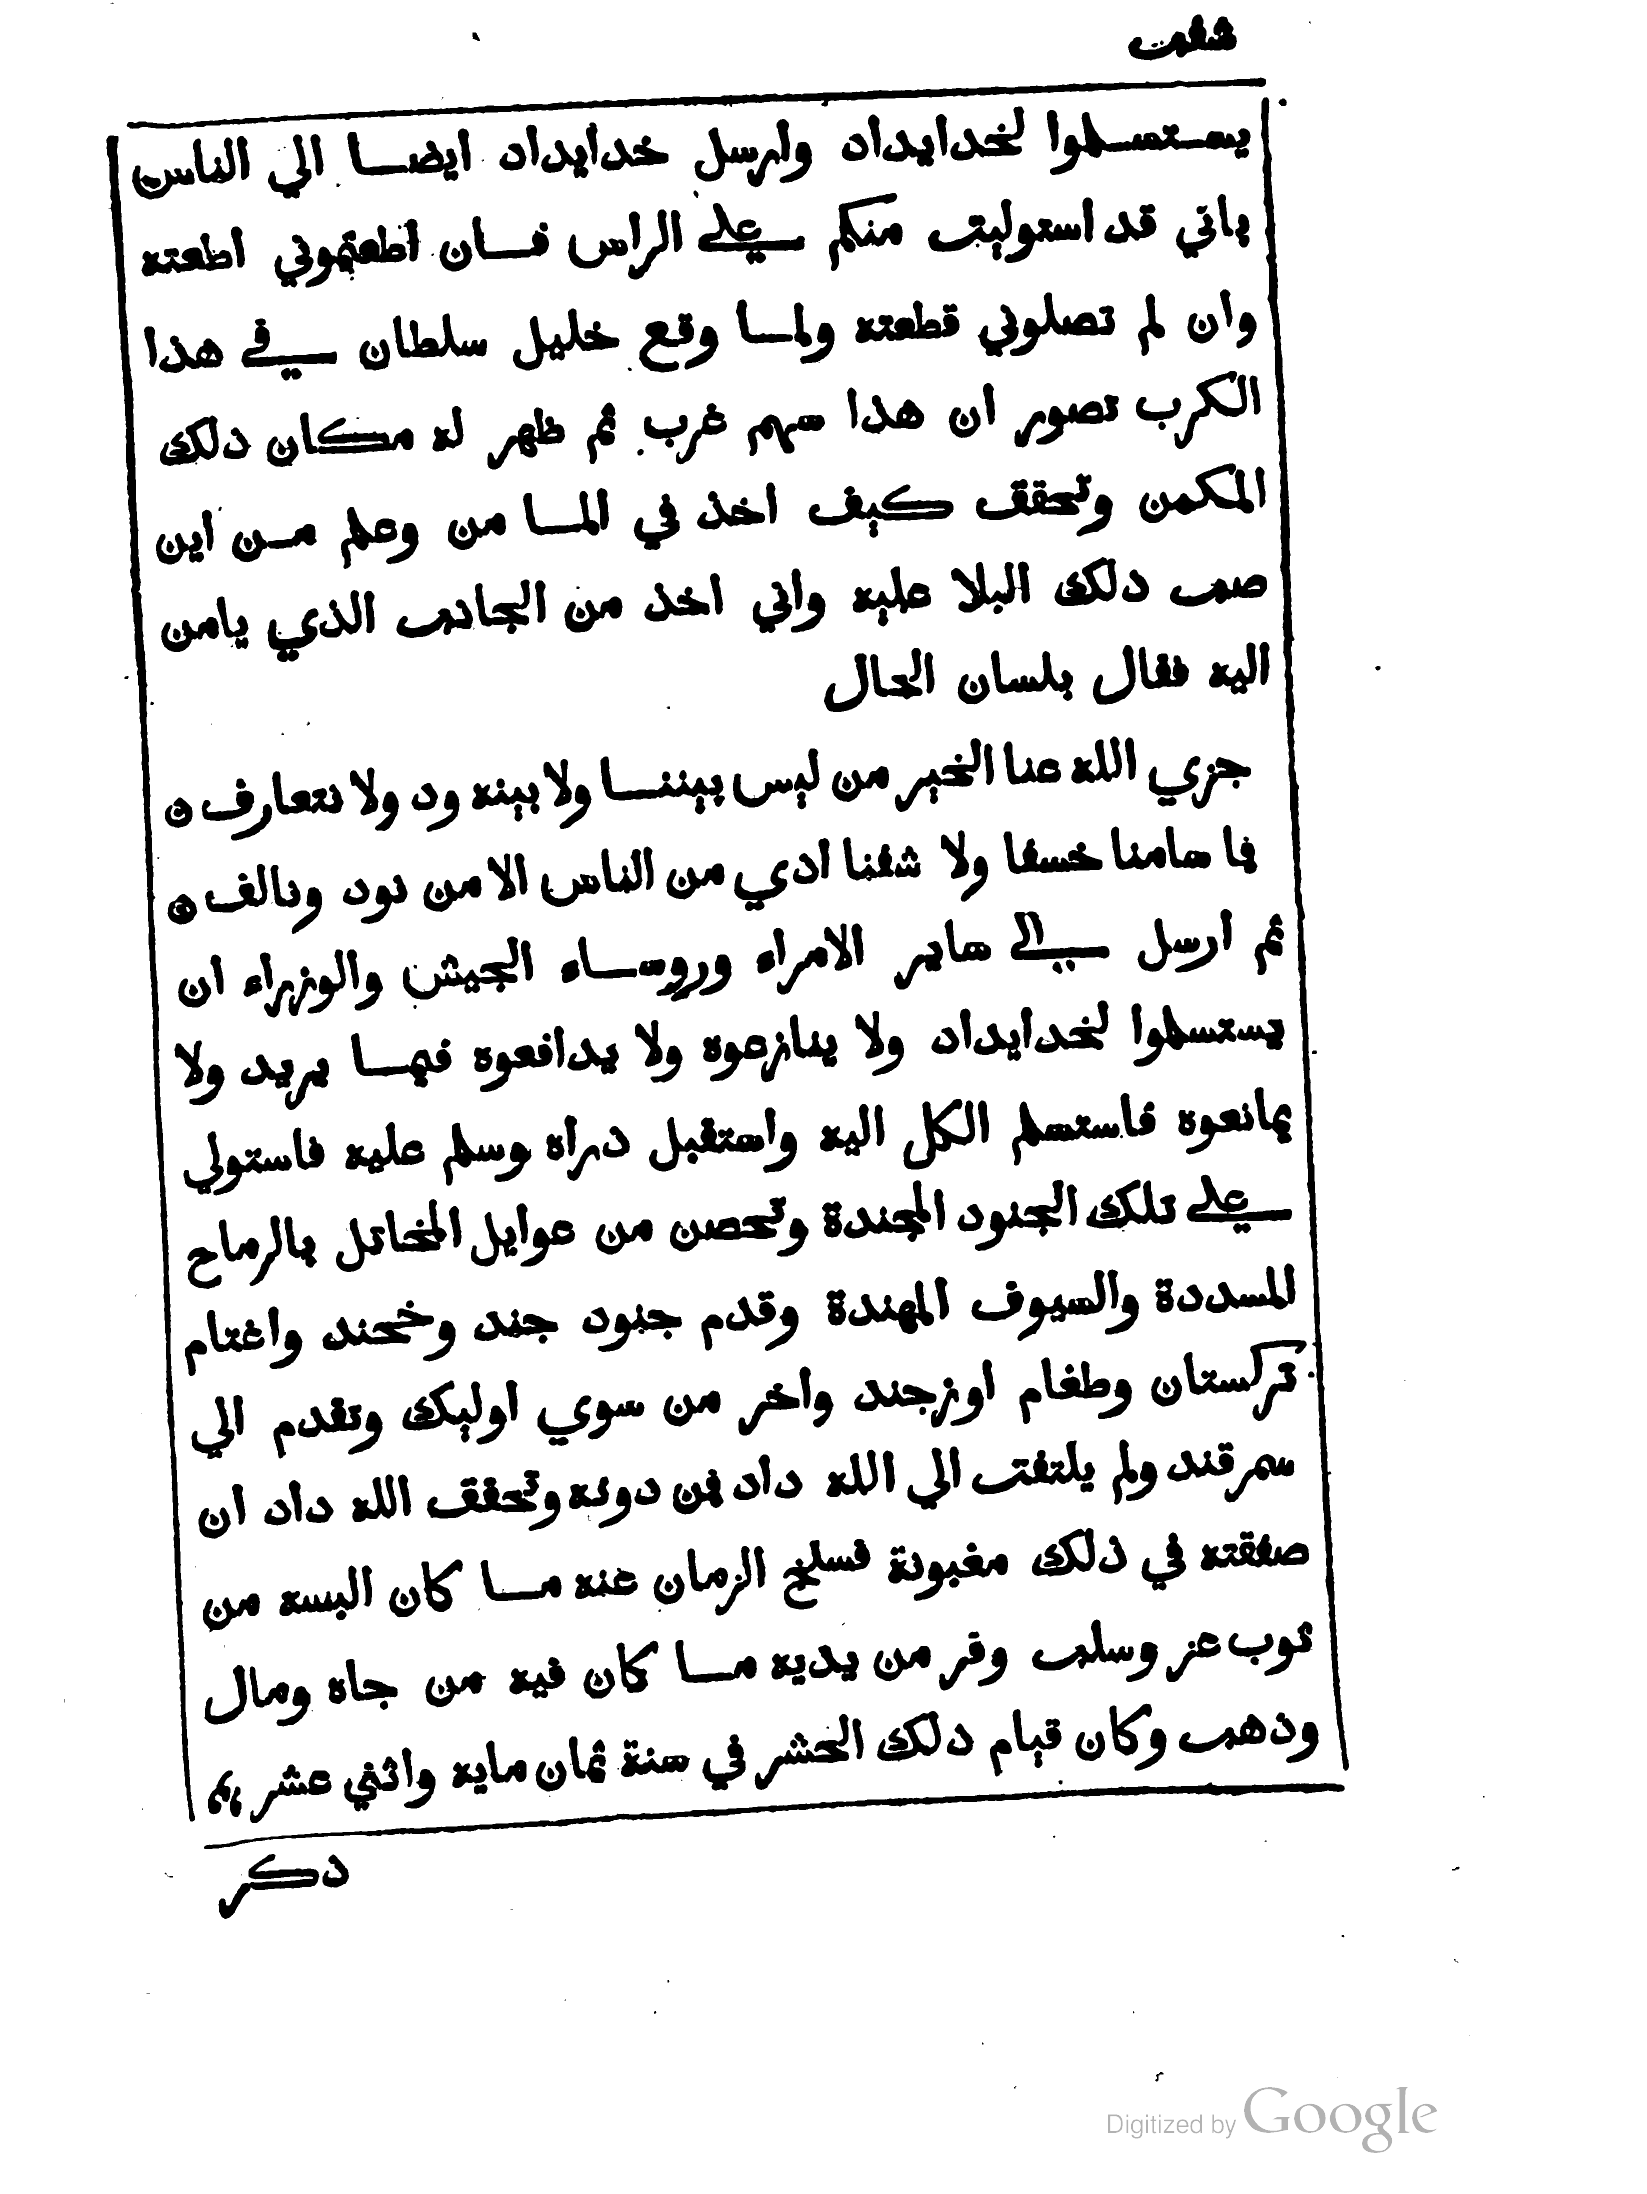 شفمت
يستسلموا لخدايداد وارسل خدايداد ايضا الي الناس
باني قد استوليت منكم علي الراس فان اطعتموني اطعته
وان لم تصلوني قطعته ولما وقع خليل سلطان في هذا
الكرب تصور ان هذا سهم غرب ثم ظهر له مكان ذلك
المكمن وتحقق كيف اخذ في الما من وعلم من اين
صب ذلك البلا عليه واني اخذ من الجانب الذي يامن
اليه فقال بلسان الحال
جزي الله عنا الخير من ليس بيننا ولا بينه ود ولا نتعارف
فا سامنا خسفا ولا شفنا ادي من الناس الا من نود ونالف
ثم ارسل الي ساير الامراء وروساء الجيش والوزراء ان
يستسلموا لخدايداد ولا ينازعوه ولا يدافعوه فيما يريد ولا
يمانعوه فاستسلم الكل اليه واستقبل دراه وسلم عليه فاستولي
علي تلك الجنود المجندة وتحصن من عوايل المخاتل بالرماح
المسددة والسيوف المهندة وقدم جنود جند وخجند واغتام
تركستان وطغام اوزجند واخر من سوي اوليك وتقدم الي
سمرقند ولم يلتفت الي الله داد فمن دونه وتحقق الله داد ان
صفقته في ذلك مغبونة فسلخ الزمان عنه ما كان البسه من
ثوب عز وسلب وفر من يديه ما كان فيه من جاه ومال
وذهب وكان قيام ذلك الحشر في سنة ثمان مايه واثني عشر
ذكر
Digitized by Google